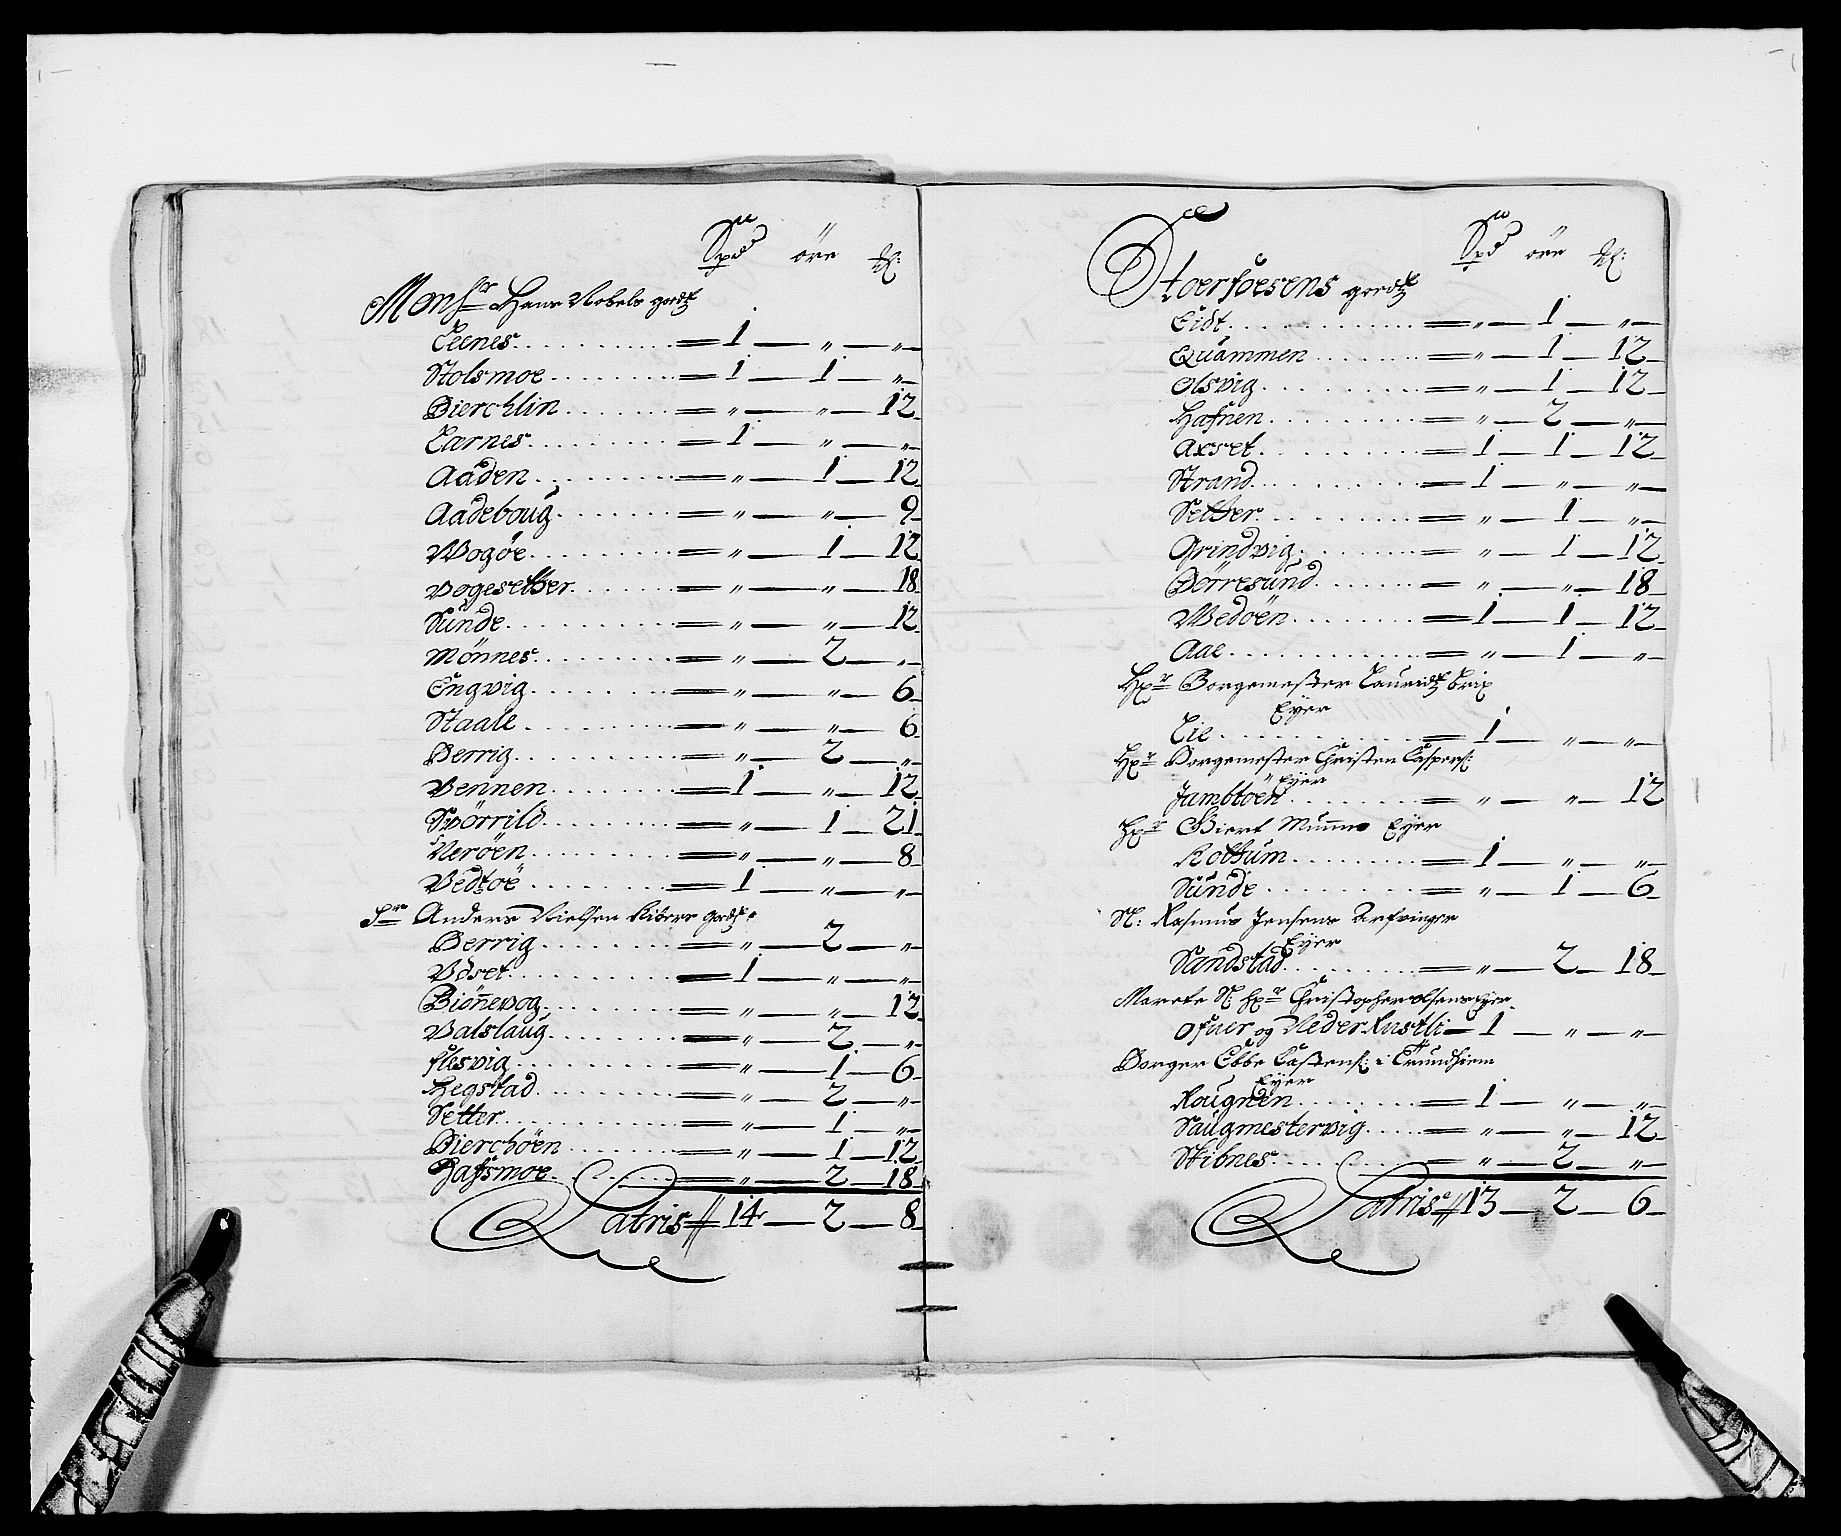 Spd öre
Monhr Hans Nobels godtz
Teenes = 1 — „ — „
Stolsmoe = 1 — 1 — „
Bierchlin = „ — „ — 12
Tarnes = 1 — „ — „
Aaden = „ — 1 — 12
Aadeboug = „ — „ — 9
Wogöe = „ — 1 — 12
Vogesetter = „ — „ — 18
Sunde = „ — „ — 12
Mönnes = „ — 2 — „
Engvig = „ — „ — 6
Staale = „ — „ — 6
Berrig = „ — 2 — „
Vennen = 1 — „ — 12
Spörrild = „ — 1 — 21
Neröen = „ — „ — 8
Vedtöe = 1 — „ — „
Sr Anders Nielsen godtz
Berrig = „ — 2 — „
Vdset = 1 — „ — „
Biönnevog = „ — „ — 12
Valslaug = „ — 2 — „
flesvig = „ — 1 — 6
Hegstad = „ — 2 — „
Setter = „ — 1 — „
Bierchöen = „ — 1 — 12
Hafsmoe = „ — 2 — 18
Latris 14 — 2 — 8
Spd öre
Stoerfoesens godtz
Eidt = „ — 1 — „
Quammen = „ — 1 — 12
Olsvig = „ — 1 — 12
Hafnen = „ — 2 — „
Axset = 1 — 1 — 12
Strand = 1 — „ — „
Setter = „ — 1 — „
Grindvig = „ — 1 — 12
Börresund = „ — „ — 18
Wedöen = 1 — 1 — 12
Aae = „ — 1 — „
Hr Borgemester Lauridtz Brix
Eyer
Lie = 1 — „ — „
Hr Borgemester Christen Caspers:
Eyer
Jambtöen = „ — „ — 12
Hr Giert Eyer
Rottum = 1 — „ — „
Sunde = „ — 1 — 6
Sl: Rasmus Jensens Arfvinger
Eyer
Sandstad = „ — 2 — 18
Marete Sl: Hr Christopher Olsens Eyer
Ofuer og Neder Rustli = 1 — „ — „
Borger Ebbe Castens: i Trundhiem
Eyer
Rougnen = 1 — „ — „
Saugmestervig = „ — „ — 12
Stibnes = „ — 2 — „
Latris 13 — 2 — 6